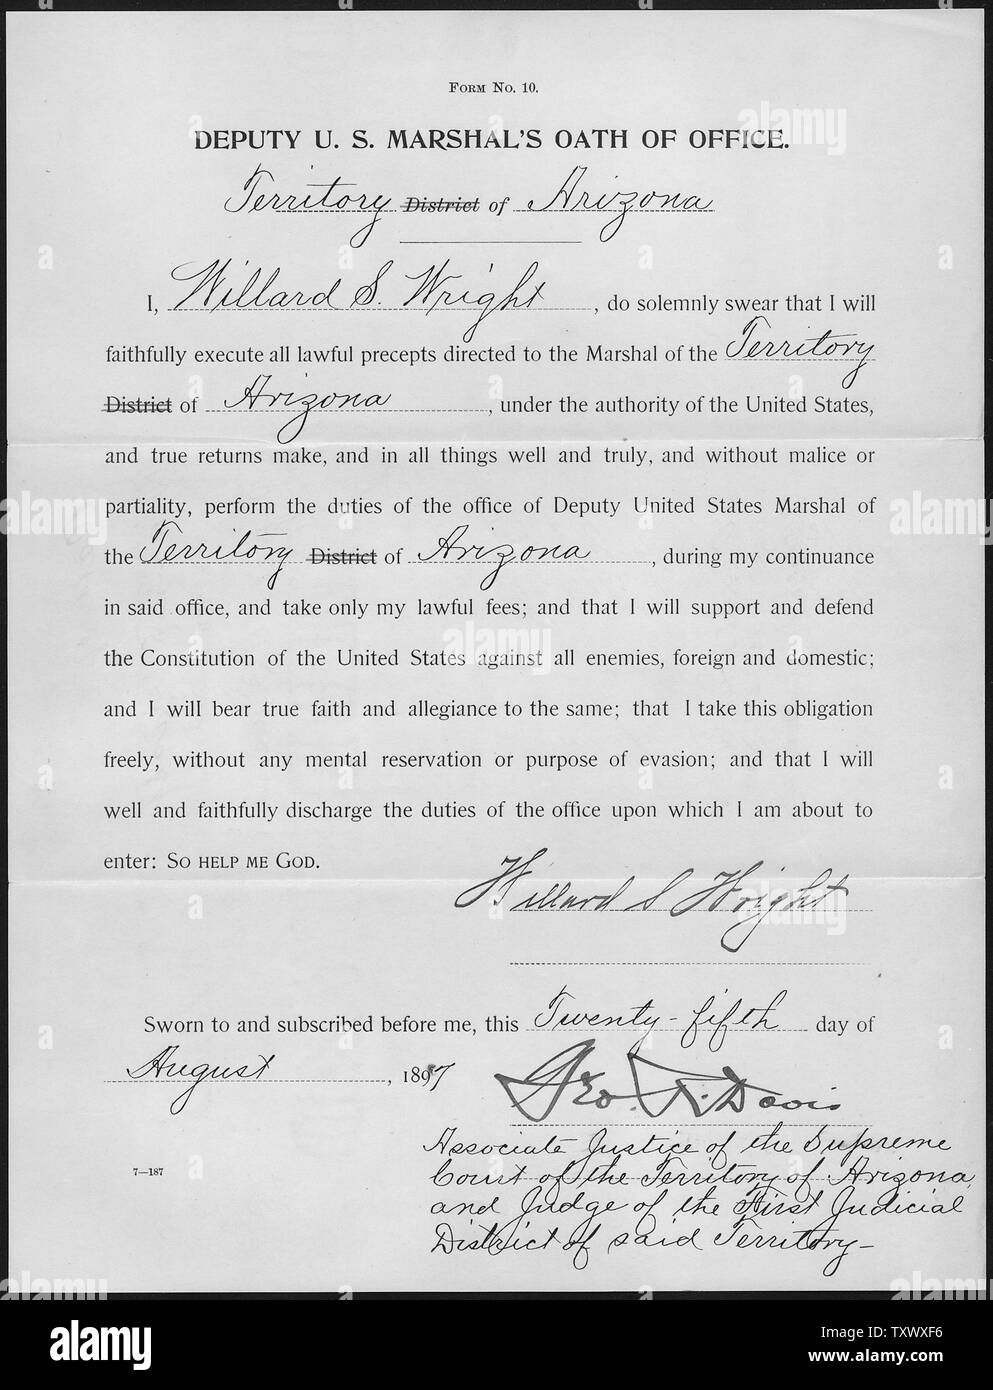 FORM NO. 10.
DEPUTY U. S. MARSHAL'S OATH OF OFFICE.
Territory ~~District~~ of Arizona
I, Willard S. Wright, do solemnly swear that I will
faithfully execute all lawful precepts directed to the Marshal of the Territory
~~District~~ of Arizona, under the authority of the United States,
and true returns make, and in all things well and truly, and without malice or
partiality, perform the duties of the office of Deputy United States Marshal of
the Territory ~~District~~ of Arizona, during my continuance
in said office, and take only my lawful fees; and that I will support and defend
the Constitution of the United States against all enemies, foreign and domestic;
and I will bear true faith and allegiance to the same; that I take this obligation
freely, without any mental reservation or purpose of evasion; and that I will
well and faithfully discharge the duties of the office upon which I am about to
enter: SO HELP ME GOD.
Willard S Wright
Sworn to and subscribed before me, this Twenty-fifth day of
August, 1897
Geo. R. Davis
Associate Justice of the Supreme
Court of the Territory of Arizona
and Judge of the First Judicial
District of said Territory—
7—187
alamy
Image ID: TXWXF6
www.alamy.com